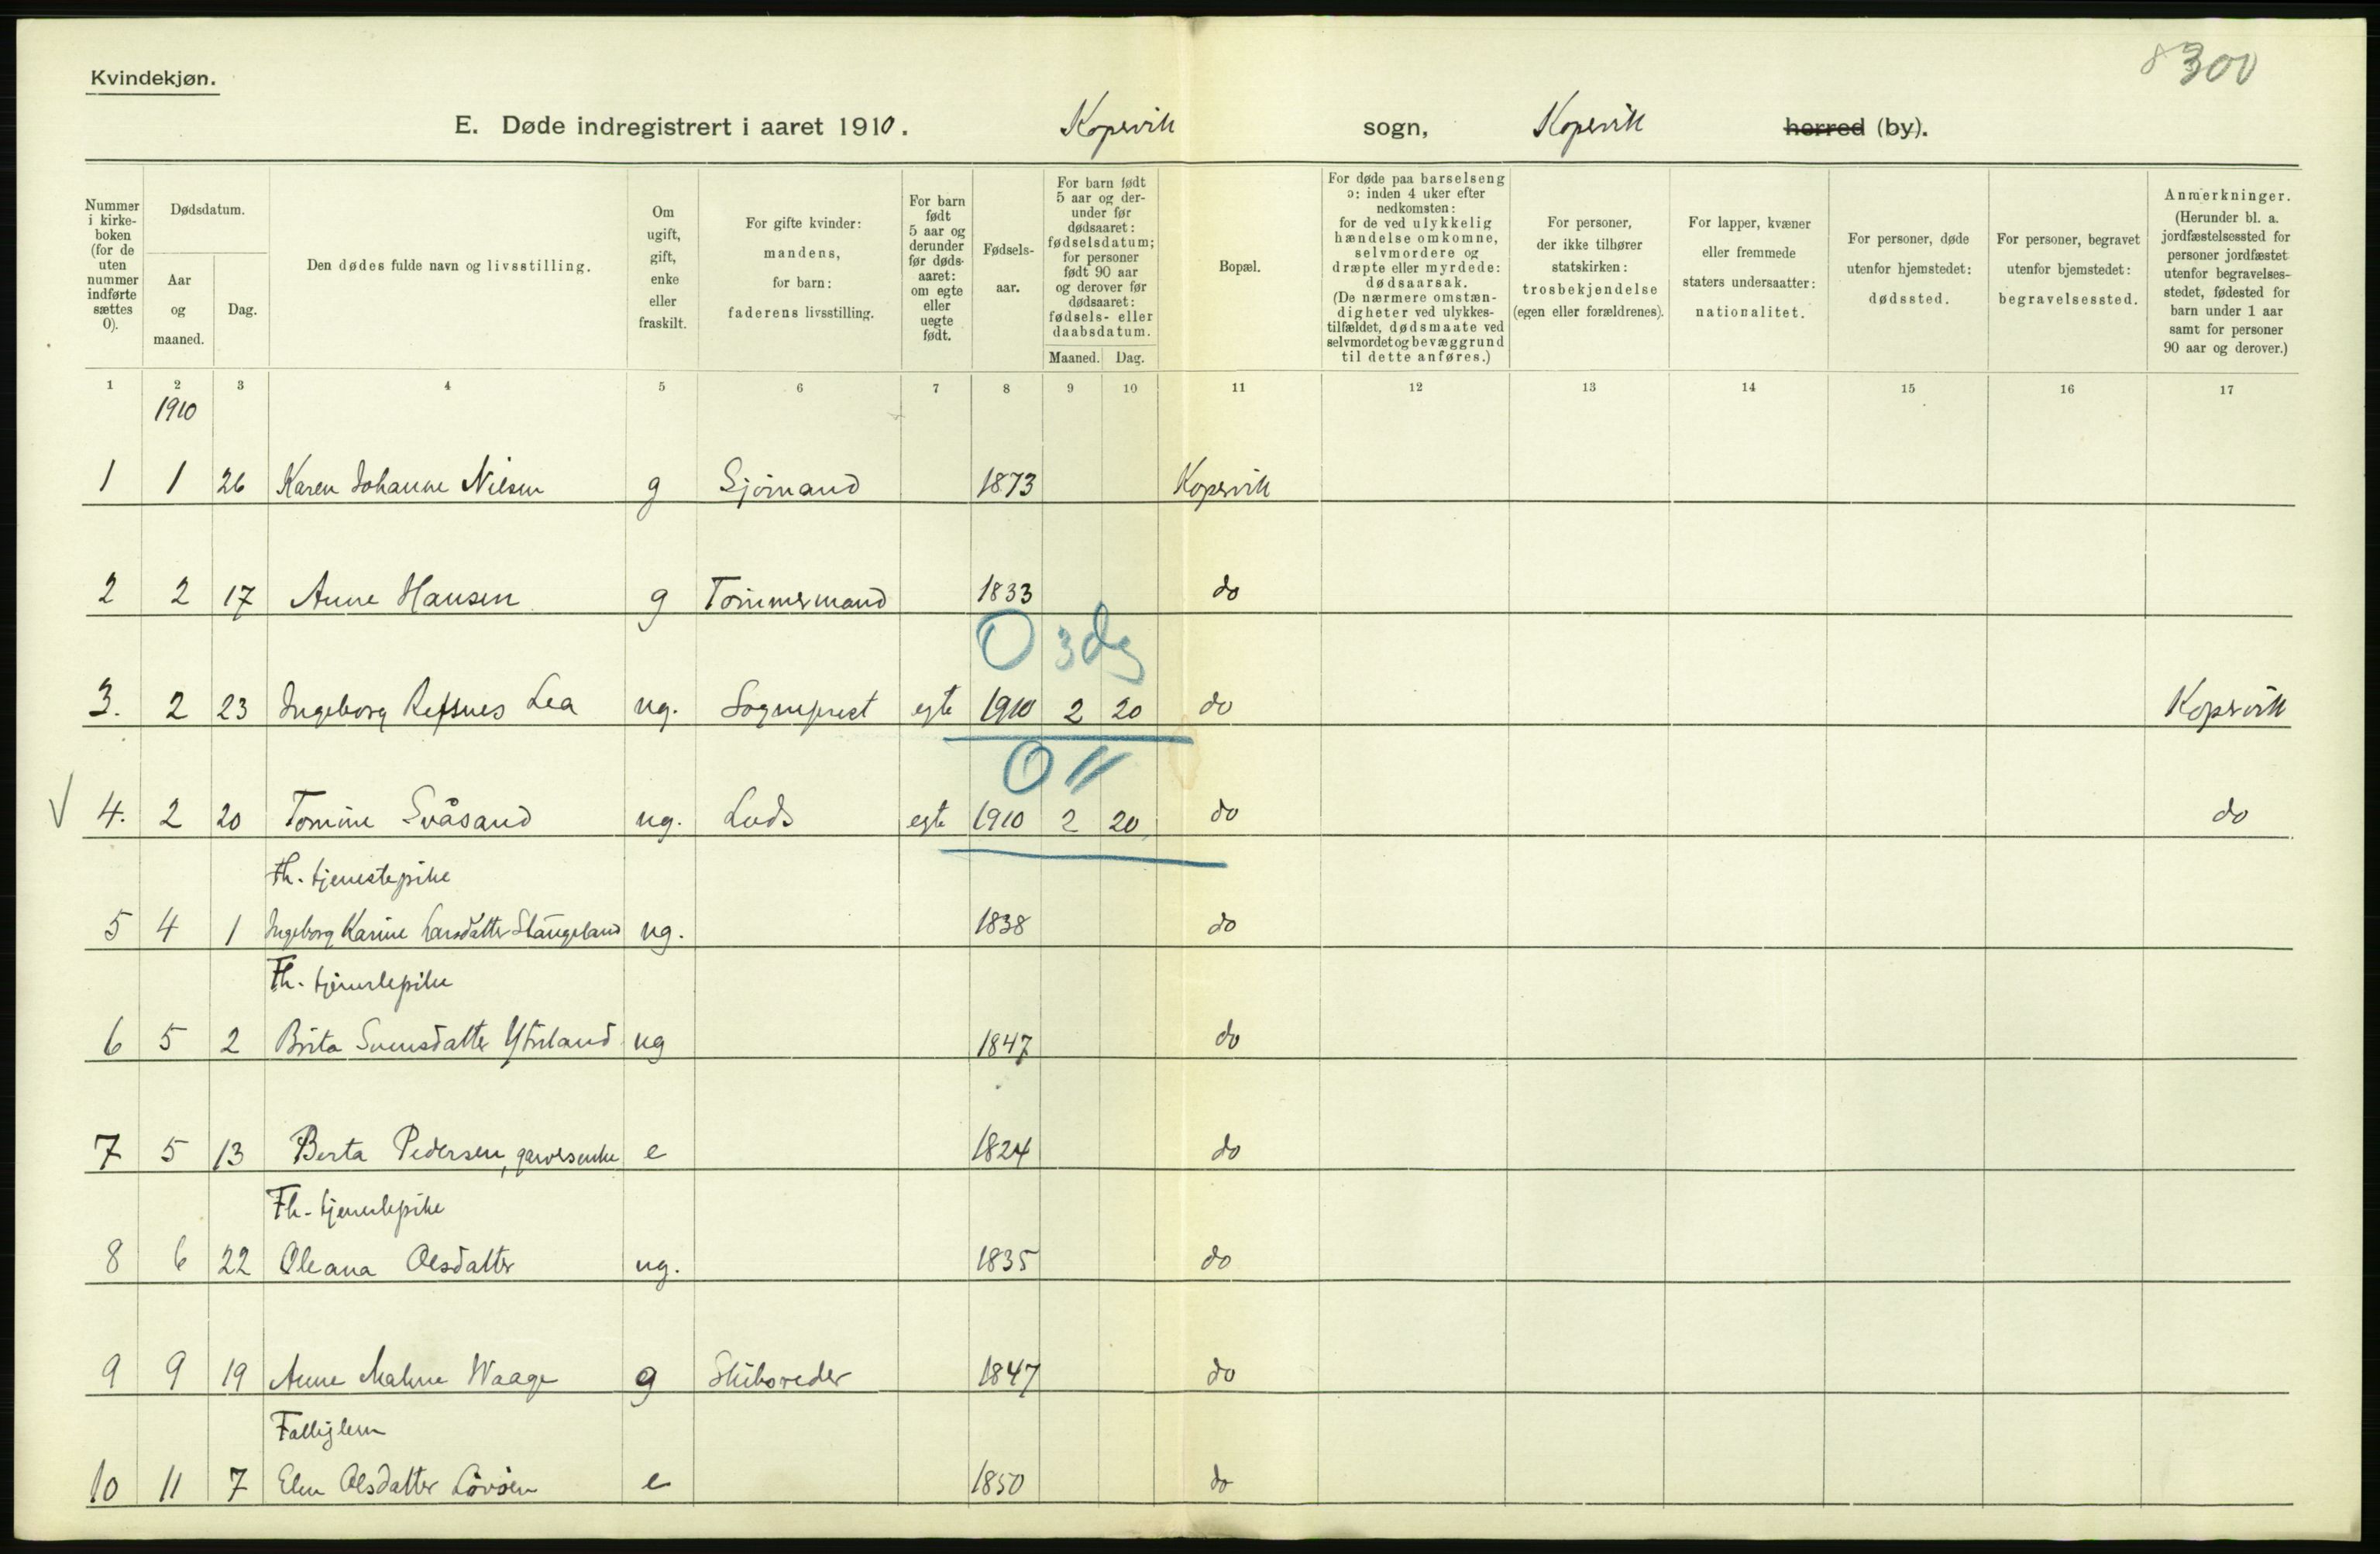 8300
Kvindekjøn.
E. Døde indregistrert i aaret 1910. Kopervik sogn, Kopervik herred (by).
Nummer i kirke-boken (for de uten nummer indførte sættes 0).
Dødsdatum.
Aar og maaned.
Dag.
Den dødes fulde navn og livsstilling.
Om ugift, gift, enke eller fraskilt.
For gifte kvinder: mandens, for barn: faderens livsstilling.
For barn født 5 aar og derunder før døds-aaret: om egte eller uegte født.
Fødsels-aar.
For barn født 5 aar og der-under før dødsaaret: fødselsdatum; for personer født 90 aar og derover før dødsaaret: fødsels- eller daabsdatum.
Maaned. Dag.
Bopæl.
For døde paa barselseng ɔ: inden 4 uker efter nedkomsten: for de ved ulykkelig hændelse omkomne, selvmordere og dræpte eller myrdede: dødsaarsak. (De nærmere omstæn-digheter ved ulykkes-tilfældet, dødsmaate ved selvmordet og bevæggrund til dette anføres.)
For personer, der ikke tilhører statskirken: trosbekjendelse (egen eller forældrenes).
For lapper, kvæner eller fremmede staters undersaatter: nationalitet.
For personer, døde utenfor hjemstedet: dødssted.
For personer, begravet utenfor bjemstedet: begravelsessted.
Anmerkninger. (Herunder bl. a. jordfæstelsessted for personer jordfæstet utenfor begravelses-stedet, fødested for barn under 1 aar samt for personer 90 aar og derover.)
1 2 3 4 5 6 7 8 9 10 11 12 13 14 15 16 17
1910
1 1 26 Karen Johanne Nilsen g Sjømand 1873 Kopervik
2 2 17 Anne Hansen g Tømmermand 1833 do
0 3 dg
3. 2 23 Ingeborg Refsnes Lea ug. Sogneprest egte 1910 2 20 do Kopervik
0 11
4. 2 20 Tomine Svåsand ug. Lods egte 1910 2 20 do do
fh. tjenestepike
5 4 1 Ingeborg Karine Larsdatter Stangeland ug. 1838 do
Fh. tjenestepike
6 5 2 Brita Svensdatter Ytreland ug 1847 do
7 5 13 Berta Pedersen, garverenke e 1824 do
Fh. tjenestepike
8 6 22 Oleana Olsdatter ug. 1835 do
9 9 19 Anne Malene Waage g Skibsreder 1847 do
Fattiglem
10 11 7 Elen Olsdatter Løvøen e 1850 do